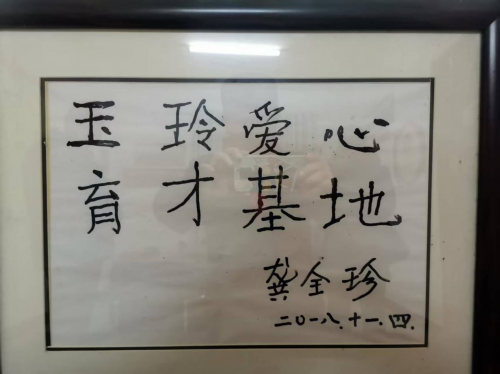 玉玲爱心
育才基地
龚全珍
二〇一八.十一.四.